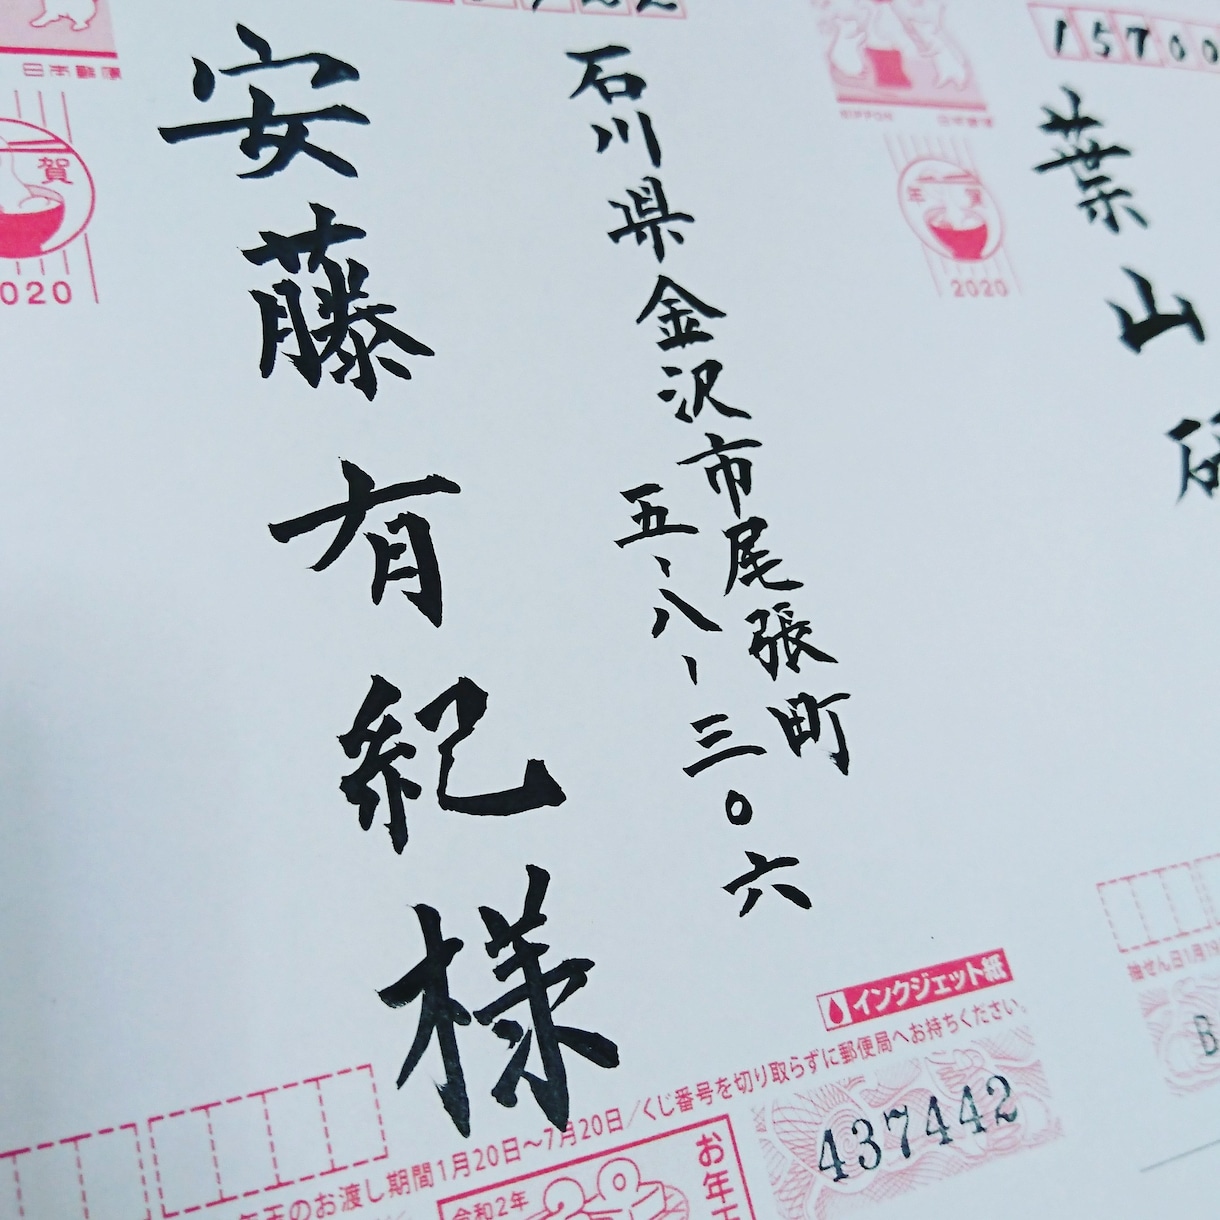 15700
葉山
石川県金沢市尾張町
五-八-三〇六
安藤有紀様
日本郵便
賀
2020
NIPPON 日本郵便
年賀
2020
インクジェット紙
お渡し期間1月20日~7月20日/くじ番号を切り取らずに郵便局へお持ちください。
437442
令和2年
お年玉
抽せん日1月19
B